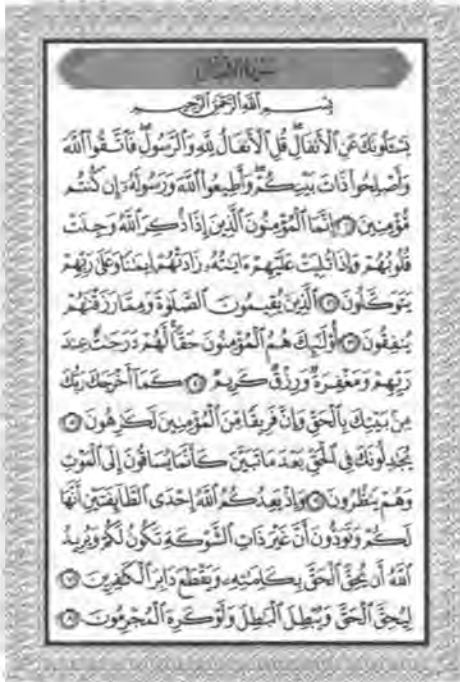 سورة الأنفال
بِسْمِ ٱللَّهِ ٱلرَّحْمَٰنِ ٱلرَّحِيمِ
يَسْـَٔلُونَكَ عَنِ ٱلْأَنفَالِ ۖ قُلِ ٱلْأَنفَالُ لِلَّهِ وَٱلرَّسُولِ ۖ فَٱتَّقُوا۟ ٱللَّهَ
وَأَصْلِحُوا۟ ذَاتَ بَيْنِكُمْ ۖ وَأَطِيعُوا۟ ٱللَّهَ وَرَسُولَهُۥٓ إِن كُنتُم
مُّؤْمِنِينَ ١ إِنَّمَا ٱلْمُؤْمِنُونَ ٱلَّذِينَ إِذَا ذُكِرَ ٱللَّهُ وَجِلَتْ
قُلُوبُهُمْ وَإِذَا تُلِيَتْ عَلَيْهِمْ ءَايَٰتُهُۥ زَادَتْهُمْ إِيمَٰنًا وَعَلَىٰ رَبِّهِمْ
يَتَوَكَّلُونَ ٢ ٱلَّذِينَ يُقِيمُونَ ٱلصَّلَوٰةَ وَمِمَّا رَزَقْنَٰهُمْ
يُنفِقُونَ ٣ أُو۟لَٰٓئِكَ هُمُ ٱلْمُؤْمِنُونَ حَقًّا ۚ لَّهُمْ دَرَجَٰتٌ عِندَ
رَبِّهِمْ وَمَغْفِرَةٌ وَرِزْقٌ كَرِيمٌ ٤ كَمَآ أَخْرَجَكَ رَبُّكَ
مِنۢ بَيْتِكَ بِٱلْحَقِّ وَإِنَّ فَرِيقًا مِّنَ ٱلْمُؤْمِنِينَ لَكَٰرِهُونَ ٥
يُجَٰدِلُونَكَ فِى ٱلْحَقِّ بَعْدَ مَا تَبَيَّنَ كَأَنَّمَا يُسَاقُونَ إِلَى ٱلْمَوْتِ
وَهُمْ يَنظُرُونَ ٦ وَإِذْ يَعِدُكُمُ ٱللَّهُ إِحْدَى ٱلطَّآئِفَتَيْنِ أَنَّهَا
لَكُمْ وَتَوَدُّونَ أَنَّ غَيْرَ ذَاتِ ٱلشَّوْكَةِ تَكُونُ لَكُمْ وَيُرِيدُ
ٱللَّهُ أَن يُحِقَّ ٱلْحَقَّ بِكَلِمَٰتِهِۦ وَيَقْطَعَ دَابِرَ ٱلْكَٰفِرِينَ ٧
لِيُحِقَّ ٱلْحَقَّ وَيُبْطِلَ ٱلْبَٰطِلَ وَلَوْ كَرِهَ ٱلْمُجْرِمُونَ ٨